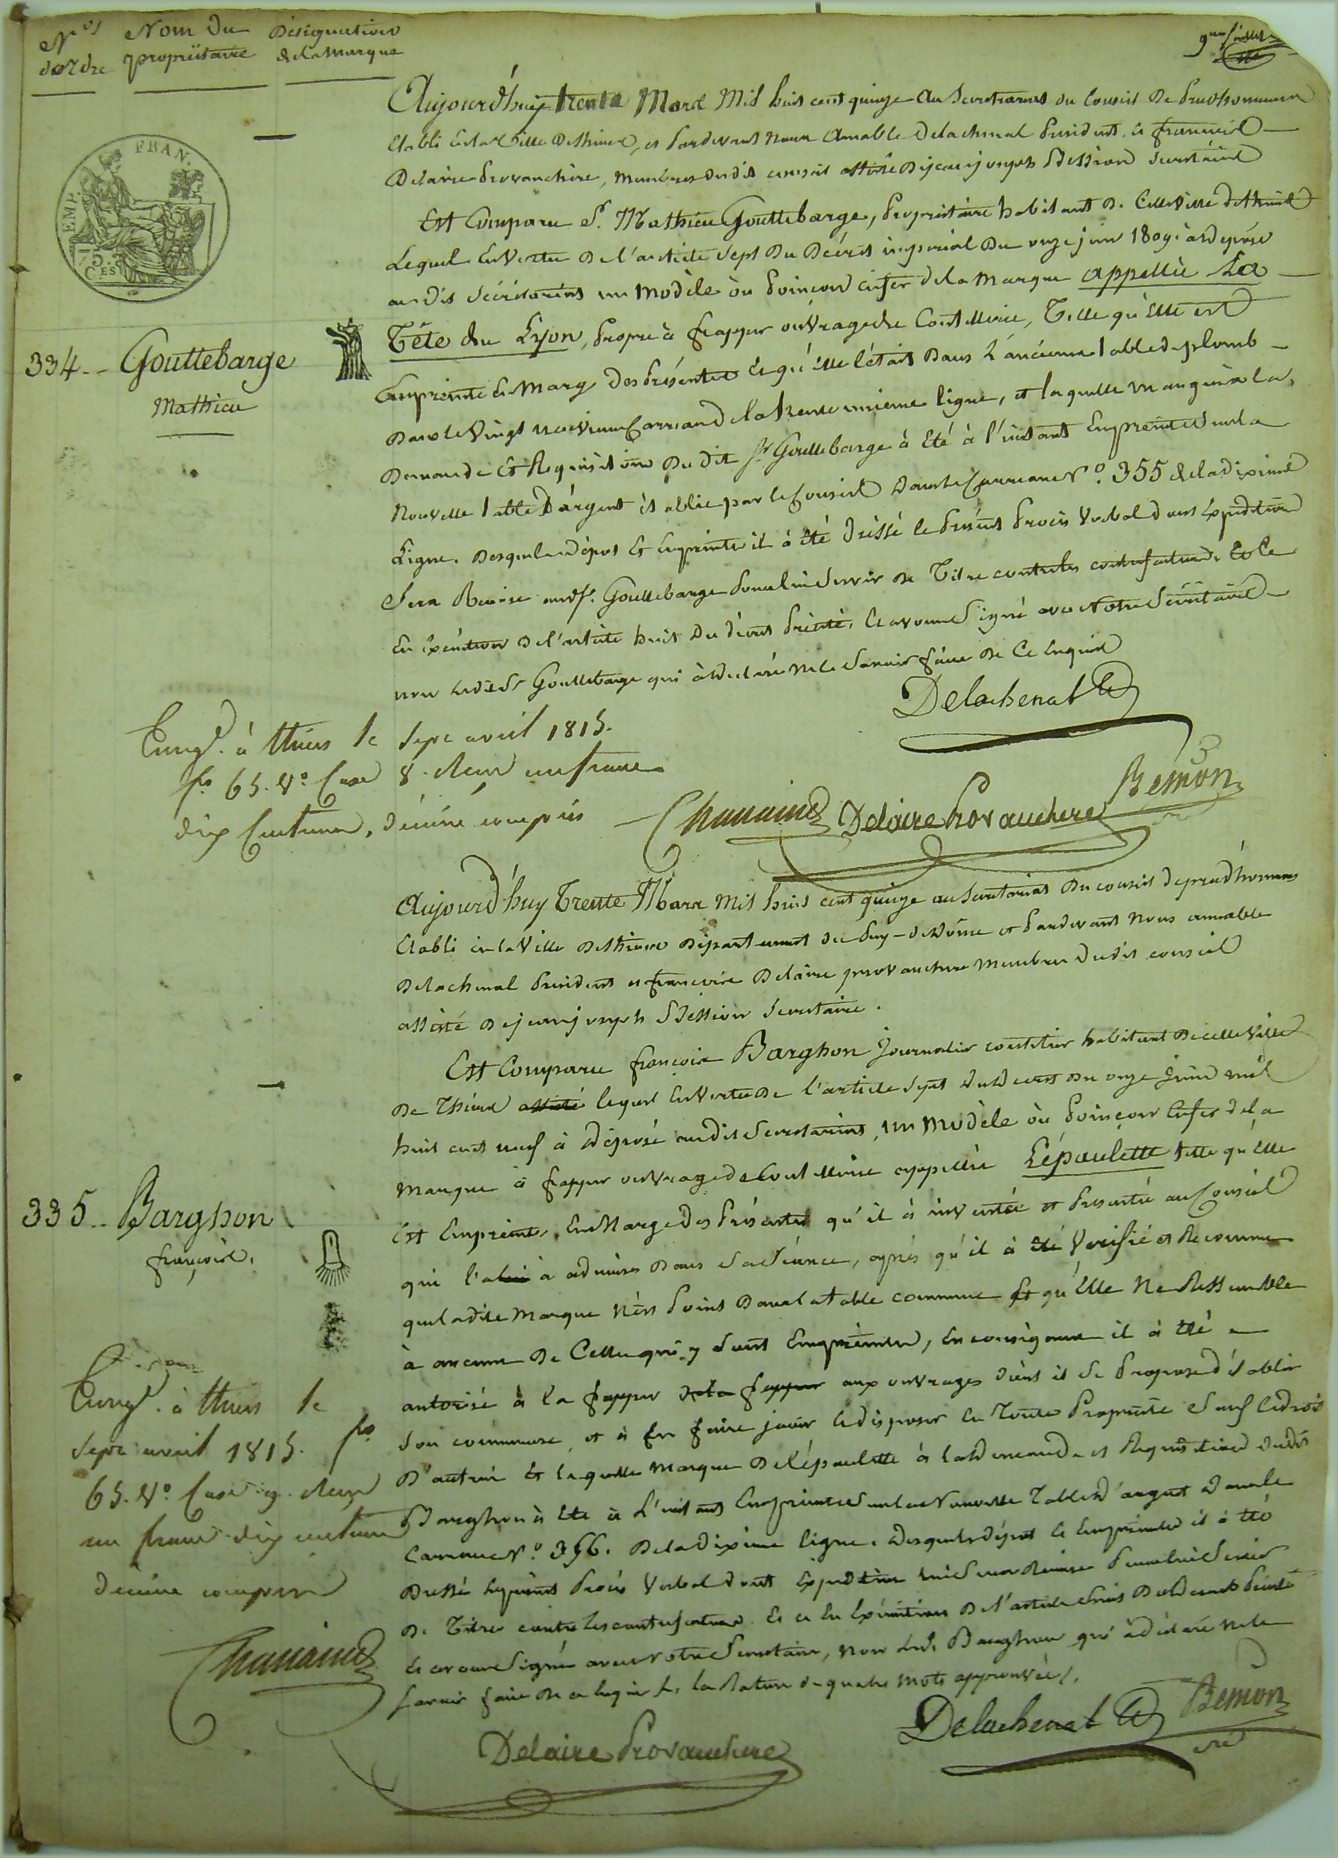 Nos d'ordre
Nom du propriétaire
Désignation de la Marque
9me feuillet
EMP. FRAN.
75.
C.ES
Aujourd'huy trente Mars Mil huit cent quinze au Secretariat du Conseil De Prudhommes
Etabli en la Ville de Thiers, et Pardevant Nous Amable Delachenal Président, et françois
Delaire Provanchere, Membres dudit conseil assisté De jean joseph Secrétaire
Est Comparu Sr. Mathieu Gouttebarge, Propriétaire habitant De Cette Ville de Thiers
Lequel En Vertu De l'article Sept Du Décret impérial Du onze juin 1809. à déposé
audit Secrétariat un Modèle ou Poinçon en fer de la Marque appellée La
Tête du Lyon, Propre à frapper ouvrages de Coutellerie, Telle qu'elle est
Empreinte En Marge des Présentes Et qu'elle l'était Dans L'ancienne Table de plomb
Dans le Vingt neuvieme Carreau de la trente unieme ligne, et laquelle marque à la
Demande Et Requisition Du dit Sr. Gouttebarge à Eté à l'instant Empreinte sur la
Nouvelle Table D'argent établie par le Conseil Dans le Carreau No. 355 de la dixieme
Ligne. Desquels dépot Et Empreinte il à été Dréssé le Présent Procès Verbal dont Expédition
Sera Remise audit Sr. Gouttebarge Pour lui Servir De Titre contre les contrefacteurs. Et Ce
En Exécution De l'article huit Du décret Précité. Et avons Signé avec Notre Secrétaire
non ledit Sr Gouttebarge qui à déclaré ne le Savoir faire De Ce Enquis
334.. Gouttebarge
Mathieu
Delachenal
Enregé. à thiers le Sept avril 1815.
fo. 65. Vo. Case 8. Reçu un franc
dix Centimes, décime compris
Chanaine
Delaire Provanchere
Bémon
Aujourd'huy Trente Mars Mil huit cent quinze au Secretariat Du conseil de prud'hommes
Etabli en la Ville de Thiers Département du Puy-de-Dôme et Pardevant Nous amable
Delachenal Président et françois Delaire provanchere Membres dudit conseil
assisté De jean joseph Secretaire.
Est Comparu françois Barghon Journalier coutelier habitant De cette Ville
De Thiers assisté lequel En Vertu De l'article Sept du Décret Du onze Juin mil
huit cent neuf à Déposé audit Secretariat, un Modèle ou Poinçon En fer de la
Marque à frapper ouvrages de Coutellerie appellée L'épaulette telle qu'elle
Est Empreinte En Marge des Présentes qu'il à inventée et Présentée au Conseil
qui l'a à admise Dans Sa Séance, après qu'il à été Vérifié et Reconnu
que ladite Marque N'est Point Dans la table commune Et qu'elle Ne Ressemble
à aucune De Celles qui y Sont Empreintes, En conséquence il à été
autorisé à la frapper de la frapper aux ouvrages dont il Se Propose d'établir
Son commerce, et à En faire jouir et disposer En Toute Propriété Sauf le droit
D'autrui Et laquelle Marque De L'épaulette à la Demande et Réquisition dudit
Barghon à été à L'instant Empreinte Sur la Nouvelle Table D'argent Dans le
Carreau No. 356. De la dixieme ligne. Desquels dépot Et Empreinte il à été
Dressé le présent Procès Verbal dont Expédition lui Sera Remise Pour lui Servir
De Titre contre les contrefacteurs. Et ce En Exécution De l'article huit Du Décret Précité
Et avons Signé avec Notre Secretaire, Non ledit Barghon qui à déclaré ne le
Savoir faire De ce Enquis. la Rature de quatre Mots approuvée.
335.. Barghon
françois.
Enregé. à thiers le
Sept avril 1815. fo.
65. Vo. Case 9. Reçu
un franc dix centimes
décime compris
Chanaine
Delaire Provanchere
Delachenal
Bémon